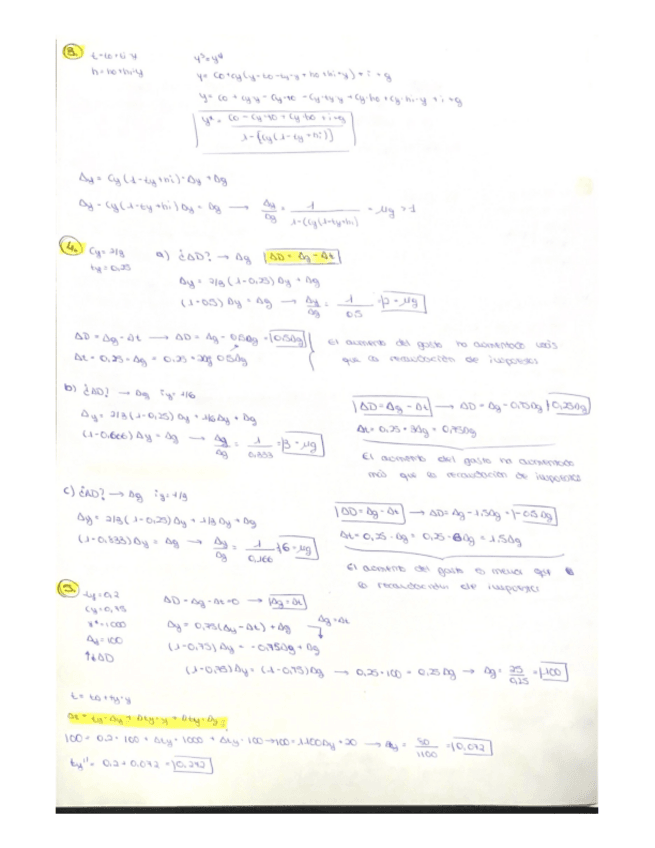 3. t = to + ty·y
h = ho + hi·y
yˢ = yᵈ
y = co + cy(y - to - ty·y + ho + hi·y) + i + g
y = co + cy·y - cy·to - cy·ty·y + cy·ho + cy·hi·y + i + g
y* = co - cy·to + cy·ho + i + g / 1 - (cy(1 - ty + hi))
Δy = cy(1 - ty + hi)·Δy + Δg
Δy - cy(1 - ty + hi)Δy = Δg → Δy/Δg = 1 / 1-(cy(1-ty+hi)) = μg > 1
4. cy = 2/3
ty = 0,25
a) ¿ΔD? → Δg ΔD = Δg - Δt
Δy = 2/3(1-0,25)Δy + Δg
(1-0.5)Δy = Δg → Δy/Δg = 1/0.5 = 2 = μg
ΔD = Δg - Δt → ΔD = Δg - 0.5Δg = 0.5Δg
Δt = 0,25 · Δy = 0,25 · 2Δg = 0.5Δg
El aumento del gasto ha aumentado más
que la recaudación de impuestos
b) ¿ΔD? → Δg iy = 1/6
Δy = 2/3(1-0,25)Δy + 1/6Δy + Δg
(1-0,666)Δy = Δg → Δy/Δg = 1/0,333 = 3 = μg
ΔD = Δg - Δt → ΔD = Δg - 0,75Δg = 0,25Δg
Δt = 0,25 · 3Δg = 0,75Δg
El aumento del gasto ha aumentado
más que la recaudación de impuestos
c) ¿ΔD? → Δg iy = 1/3
Δy = 2/3(1-0,25)Δy + 1/3Δy + Δg
(1-0,833)Δy = Δg → Δy/Δg = 1/0,166 = 6 = μg
ΔD = Δg - Δt → ΔD = Δg - 1.5Δg = -0.5Δg
Δt = 0,25 · Δy = 0,25 · 6Δg = 1.5Δg
El aumento del gasto es menor que
la recaudación de impuestos
5. ty = 0,2
cy = 0,75
y* = 1000
Δy = 100
ΔD
ΔD = Δg - Δt = 0 → Δg = Δt
Δy = 0,75(Δy - Δt) + Δg Δg = Δt
(1-0,75)Δy = -0,75Δg + Δg
(1-0,75)Δy = (1-0,75)Δg → 0,25·100 = 0,25Δg → Δg = 25/0,25 = 100
t = to + ty·y
Δt = ty·Δy + Δty·y + Δty·Δy
100 = 0.2 · 100 + Δty · 1000 + Δty · 100 → 100 = 1100Δty + 20 → Δty = 80/1100 = 0,072
ty'' = 0.2 + 0.072 = 0,272